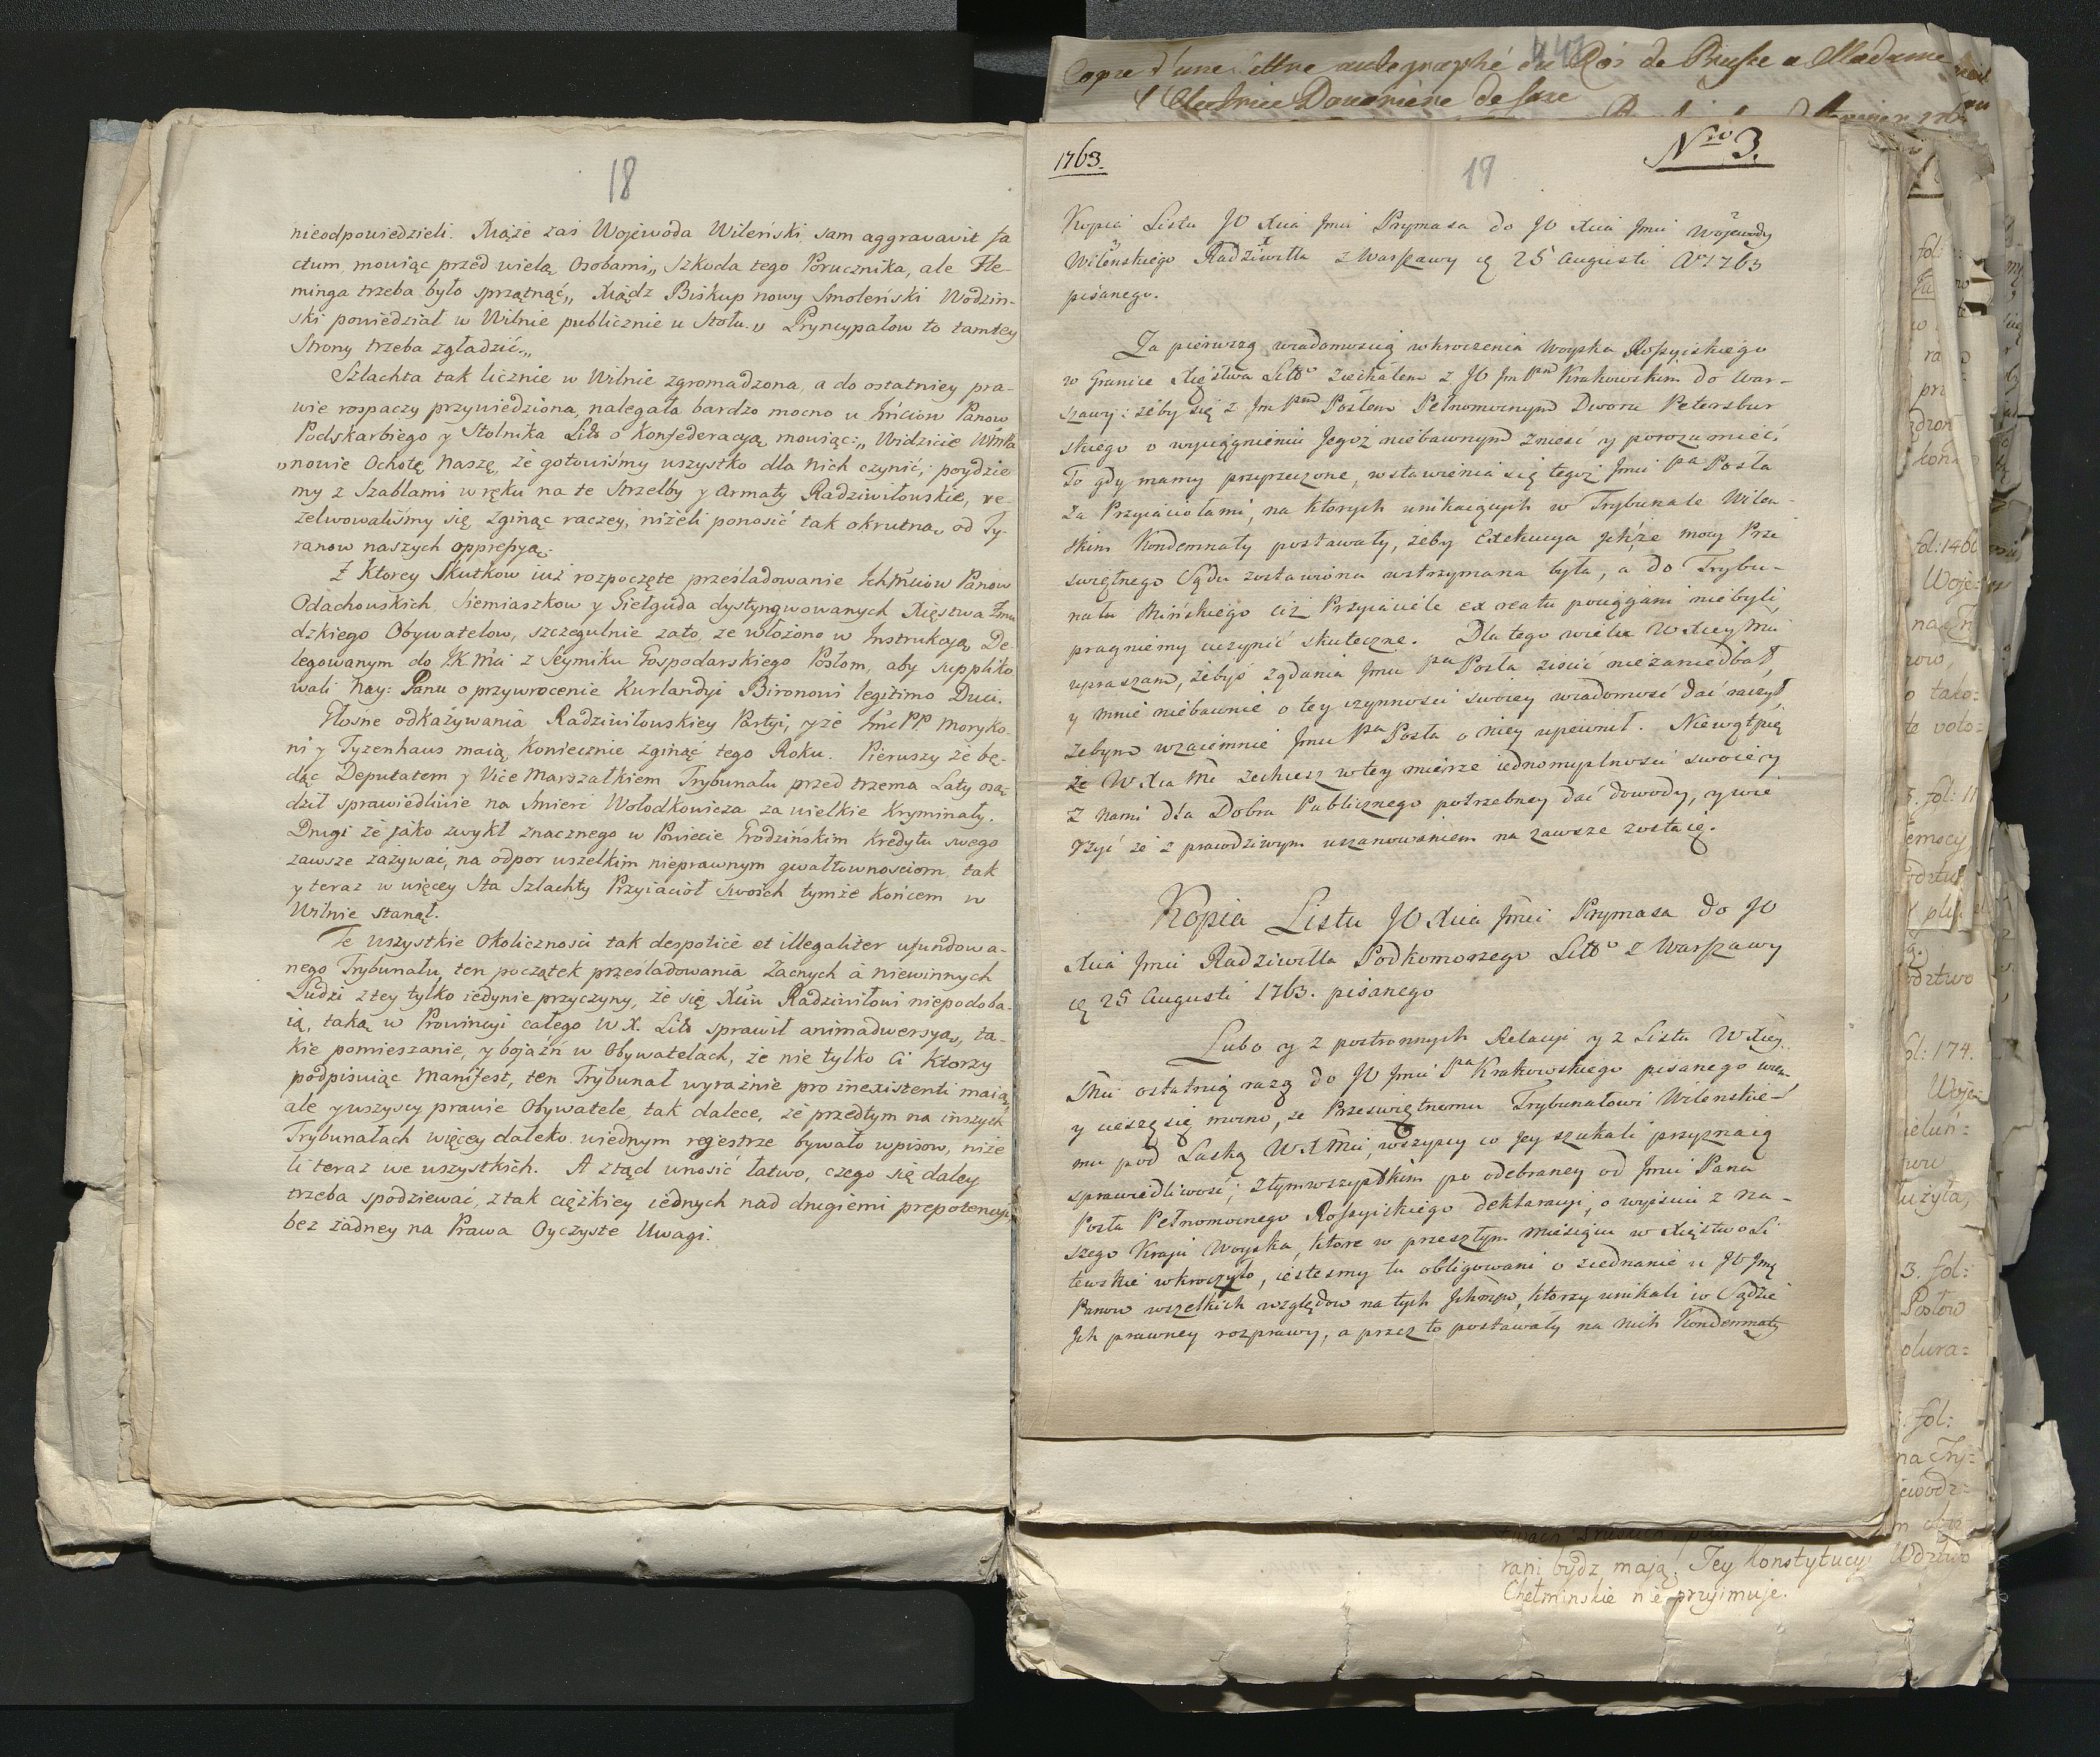 18
nieodpowiedzieli. Xiąże zaś Wojewoda Wileński sam aggravavit fa
ctum, mowiąc przed wielą Osobami„ Szkoda tego Porucznika, ale Fle-
minga trzeba było sprzątnąć„ Xiądz Biskup nowy Smoleński Wodzin-
ski powiedział w Wilnie publicznie u Stołu„ Pryncypałow to tamtey
Strony trzeba zgładzić„
Szlachta tak licznie w Wilnie zgromadzona, a do ostatniey pra-
wie rospaczy przywiedziona, nalegała bardzo mocno u Jmciow Panow
Podskarbiego y Stolnika Litt o Konfederacyą, mowiąc:„ Widzicie
„nowie Ochotę Naszę, że gotowiśmy wszystko dla Nich czynić; poydzie
my z Szablami w ręku na te Strzelby y Armaty Radziwiłowskie, re-
zelwowaliśmy się zginąc raczey, niżeli ponosić tak okrutną, od Ty-
ranow naszych oppresyą.
Z Ktorey Skutkow iuż rozpoczęte prześladowanie Ichmciow Panow
Odachowskich, Siemiaszkow y Giełguda dystyngwowanych Xięstwa Żmu
dzkiego Obywatelow, szczegulnie zato, ze włożono w Instrukcyą De-
legowanym do JKMci z Seymiku Gospodarskiego Posłom, aby suppliko
wali Nay: Panu o przywrocenie Kurlandyi Bironowi legitimo Duci.
Głośne odkazywania Radziwiłowskiey Partyi, yże Jmc PP. Moryko-
ni y Tyzenhaus maią Koniecznie zginąć tego Roku. Pierwszy że bę-
dąc Deputatem y Vice Marszałkiem Trybunału przed trzema Laty osą
dził sprawiedliwie na Smierć Wołodkowicza za wielkie Kryminały.
Drugi że jako zwykł znacznego w Powiecie Grodzińskim Kredytu swego
zawsze zażywać, na odpor wszelkim nieprawnym gwałtownosciom, tak
y teraz w więcey Sta Szlachty Przyiacioł swoich tymże Końcem w
Wilnie stanął.
Te wszystkie Okoliczności tak despoticè et illegaliter ufundowa-
nego Trybunału, ten początek prześladowania Zacnych à niewinnych
Ludzi z tey tylko iedynie przyczyny, że się Xciu Radziwiłowi niepodoba-
ią, taką w Prowincyi całego W X. Litt sprawił animadwersyą, ta-
kie pomieszanie, y bojaźń w Obywatelach, że nie tylko Ci Ktorzy
podpisuiąc Manifest, ten Trybunał wyraźnie pro inexistenti maią,
ale y wszyscy prawie Obywatele, tak dalece, że przedtym na inszych
Trybunałach więcey daleko wiednym rejestrze bywało wpisow, niże
li teraz we wszystkich. A ztąd wnosić łatwo, czego się daley
trzeba spodziewać, z tak ciężkiey iednych nad drugiemi prepotencyi
bez żadney na Prawa Oyczyste Uwagi.
Copie d'une Lettre autographé du Roi de Prusse a Madame
l'Electrice Douariere de Saxe
1763.
19
Nro 3.
Kopia Listu JO Xcia Jmci Prymasa do JO Xcia Jmci Wojewody
Wilenskiego Radziwiłła z Warszawy ą 25 Augusti Ao 1763
pisanego.
Za pierwszą wiadomością wkroczenia Woyska Rossyiskiego
w Granice Xięstwa Litto ziechałem z JO Jm Pnm Krakowskim do War-
szawy: żeby się z Jm Pnm Posłem Pełnomocnym Dworu Petersbur
skiego o wyciągnieniu Jegoż niebawnym znieść y porozumieć.
To gdy mamy przyrzeczone, wstawienia się tegoż Jmci Pa Posła
za Przyiaciołami, na ktorych unikaiących w Trybunale Wilen-
skim Kondemnaty postawały, żeby Exekucya Ichże mocy Prze
swiętnego Sądu zostawiona wstrzymana była, a do Trybu-
nału Mińskiego ciż Przyiaciele ex reatu pociągani niebyli,
pragniemy uczynić skuteczne. Dlatego wielce WXcey Mci
upraszam, żebyś żądania Jmci Pa Posła ziścić niezaniedbał,
y mnie niebawnie o tey czynności swoiey wiadomość dać raczył,
żebym wzaiemnie Jmci Pa Posła o niey upewnił. Niewątpię
że W Xca Mć zechcesz w tey mierze iednomyslności swoiey
z nami dla Dobra Publicznego potrzebney dać dowody, y wie
rzyć że z prawdziwym uszanowaniem na zawsze zostaię.
Kopia Listu JO Xcia Jmci Prymasa do JO
Xcia Jmci Radziwiłła Podkomorzego Litto z Warszawy
ą 25 Augusti 1763. pisanego
Lubo y z postronnych Relacyi y z Listu WXcey
Mci ostatnią razą do JO Jmci Pa Krakowskiego pisanego wiem
y cieszę się mocno, ze Przeswiętnemu Trybunałowi Wilenskie-
mu pod Laską WXMci, wszyscy co Jey szukali przyznaią
sprawiedliwość; z tym wszystkim po odebraney od Jmci Pana
Posła Pełnomocnego Rossyiskiego deklaracyi, o wyiściu z na-
szego Kraju Woyska, ktore w przeszłym miesiącu w Xięstwo Li
tewskie wkroczyło, iesteśmy tu obligowani o ziednanie u JO Jmę
Panow wszelkich względow na tych Ichmciow, ktorzy unikali w Sądzie
Ich prawney rozprawy, a przez to postawały na nich Kondemnaty
rani bydz mają. Tey Konstytucyi Wdztwo
Chełminskie nie przyimuje.